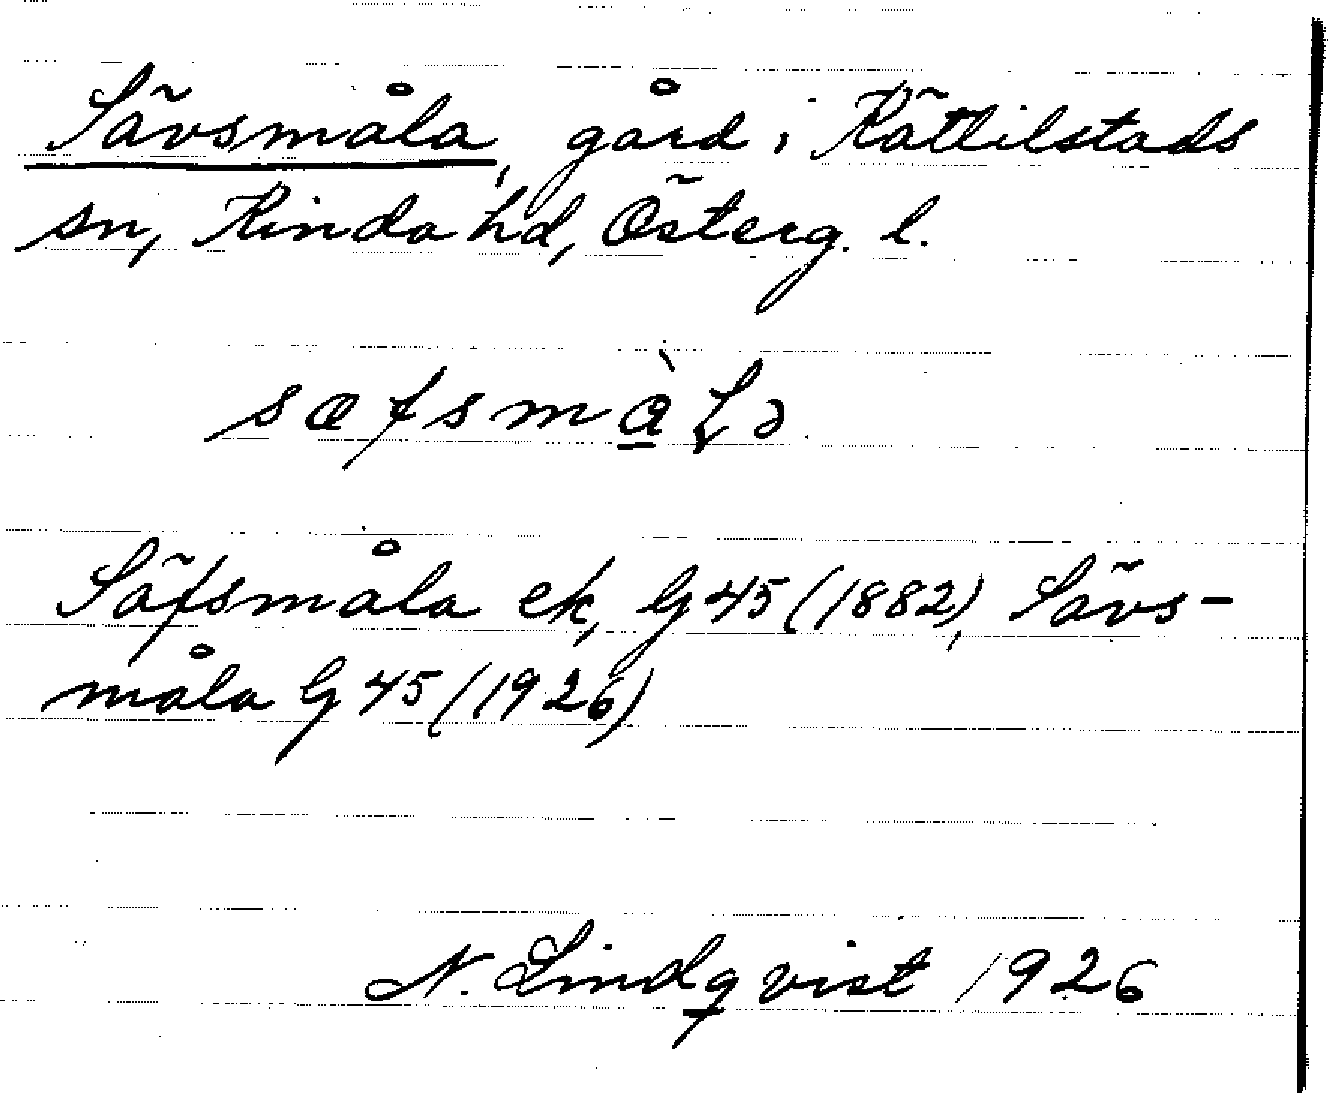 Sävsmåla, gård i Kättilstads
sn, Kinda hd, Österg. l.
sæfsmàɭə
Säfsmåla ek, G 45 (1882), Sävs-
måla G 45 (1926)
N. Lindqvist 1926